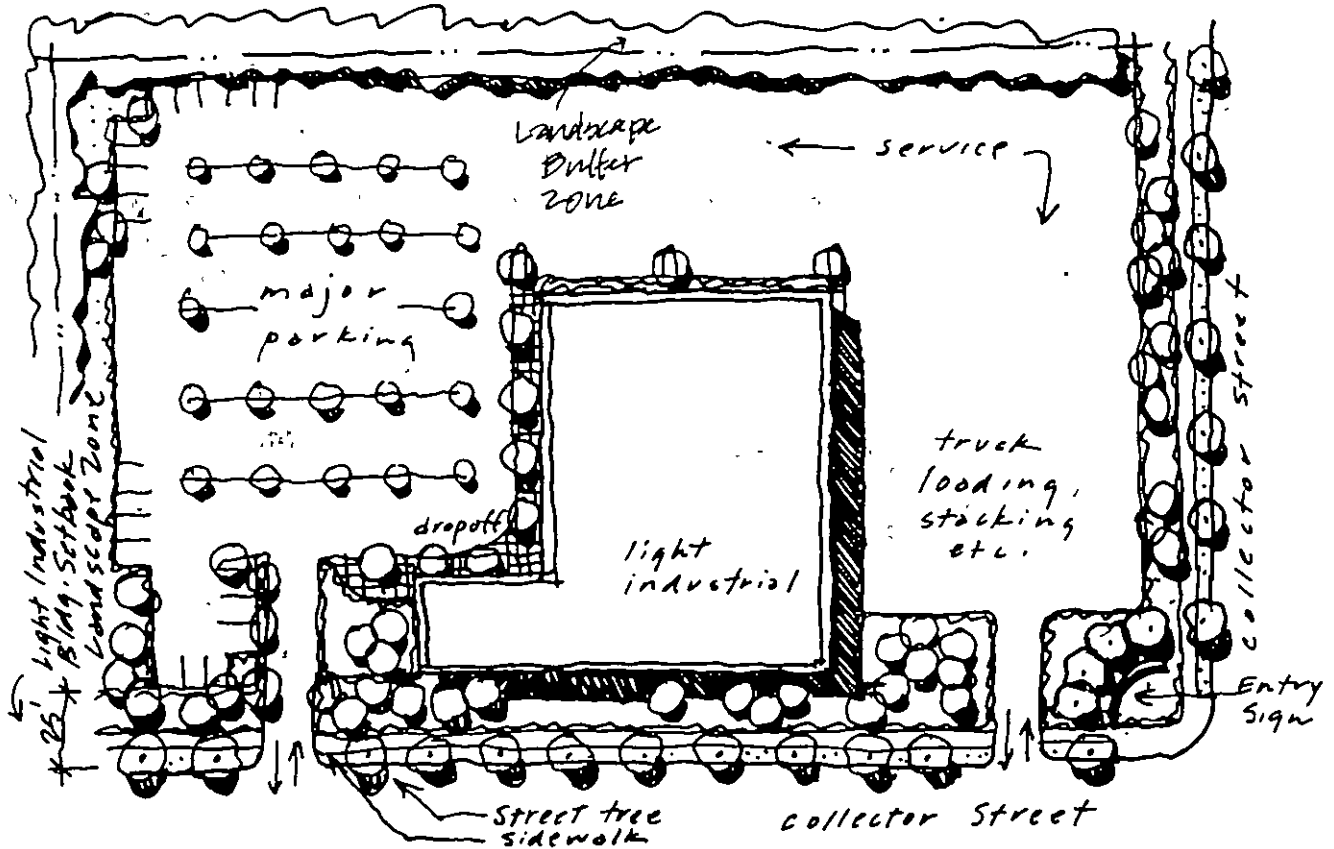 Landscape
Buffer
Zone
service
major
parking
dropoff
light
industrial
truck
loading,
stacking
etc.
collector street
Light Industrial
Bldg. Setback
Landscape Zone
25'
Entry
Sign
Street tree
sidewalk
collector Street